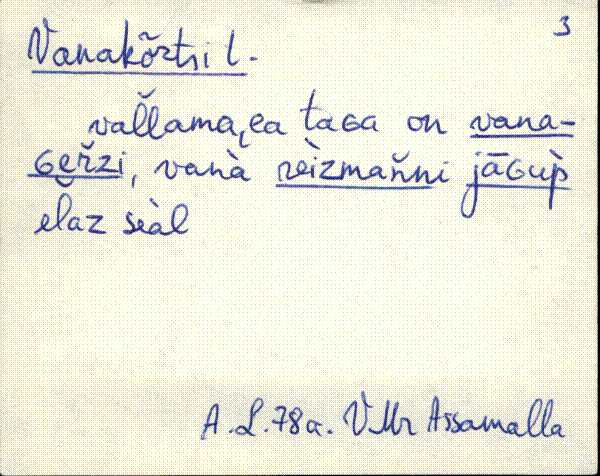 3
Vanakõrtsi l.
val̆lama,ea taGa on vana-
Ger̆zi, vanà reìzman̆ni jāGup̀
el̆az seàl
A.L.78a. VMr Assamalla